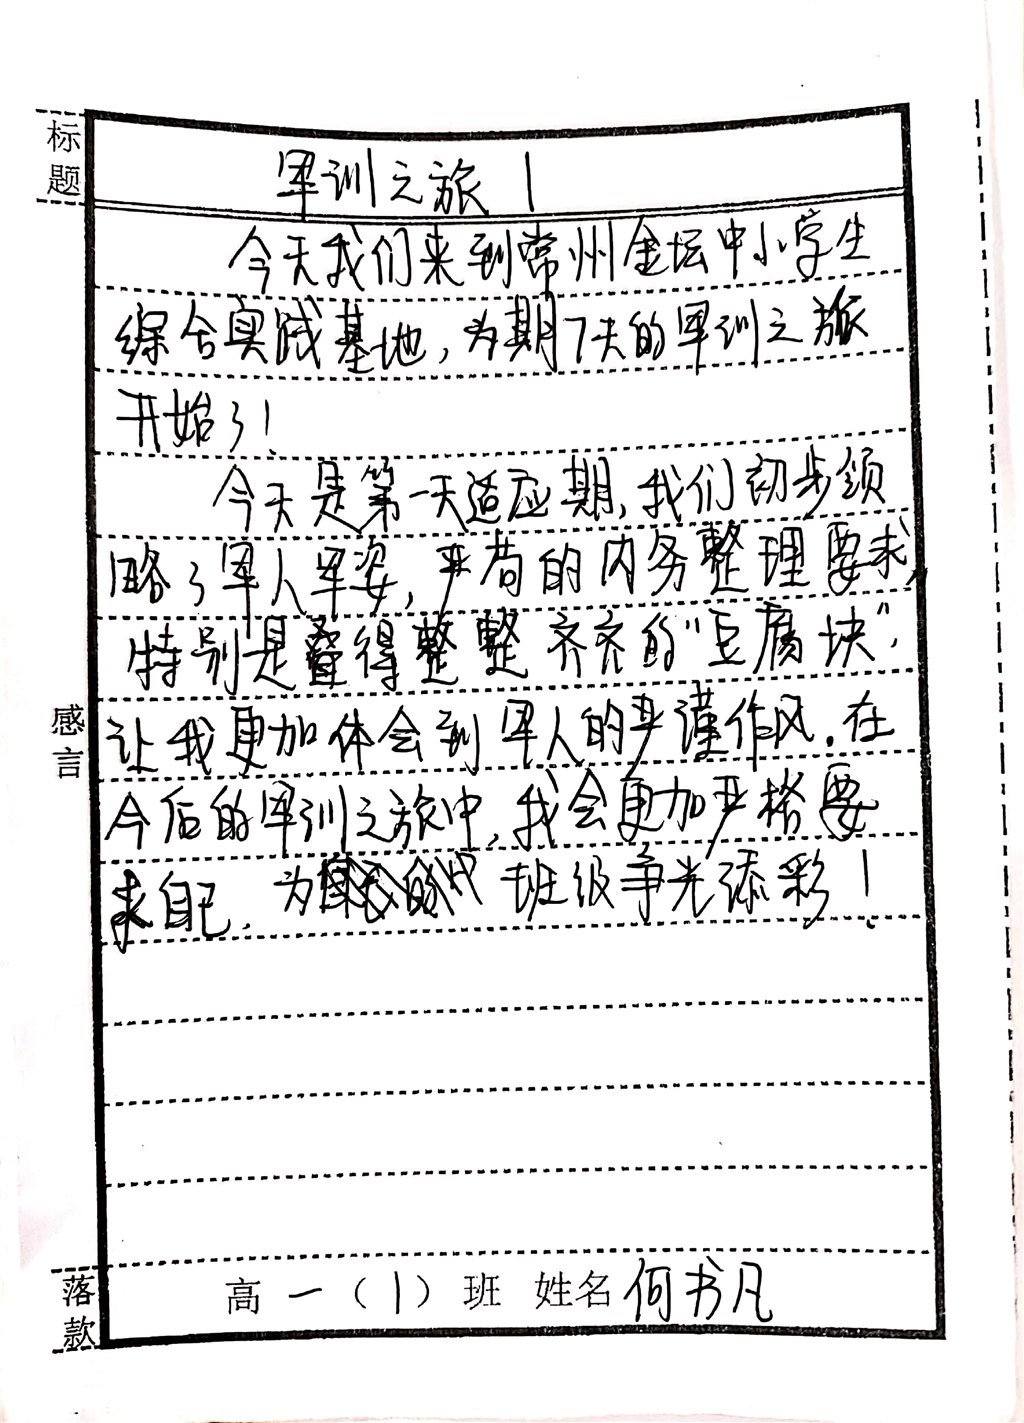 标题
军训之旅 1
今天我们来到常州金坛中小学生
综合实践基地,为期7天的军训之旅
开始了!
今天是第一天适应期,我们初步领
略了军人军姿,严苛的内务整理要求,
特别是叠得整整齐齐的"豆腐块",
感言
让我更加体会到军人的严谨作风.在
今后的军训之旅中,我会更加严格要
求自己.为班级争光添彩!
落款
高一(1)班 姓名 何书凡